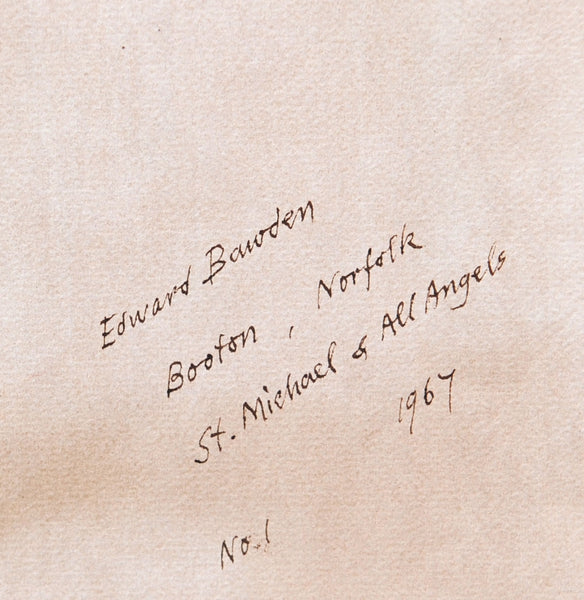 Edward Bawden
Booton, Norfolk
St. Michael & All Angels
1967
No. 1